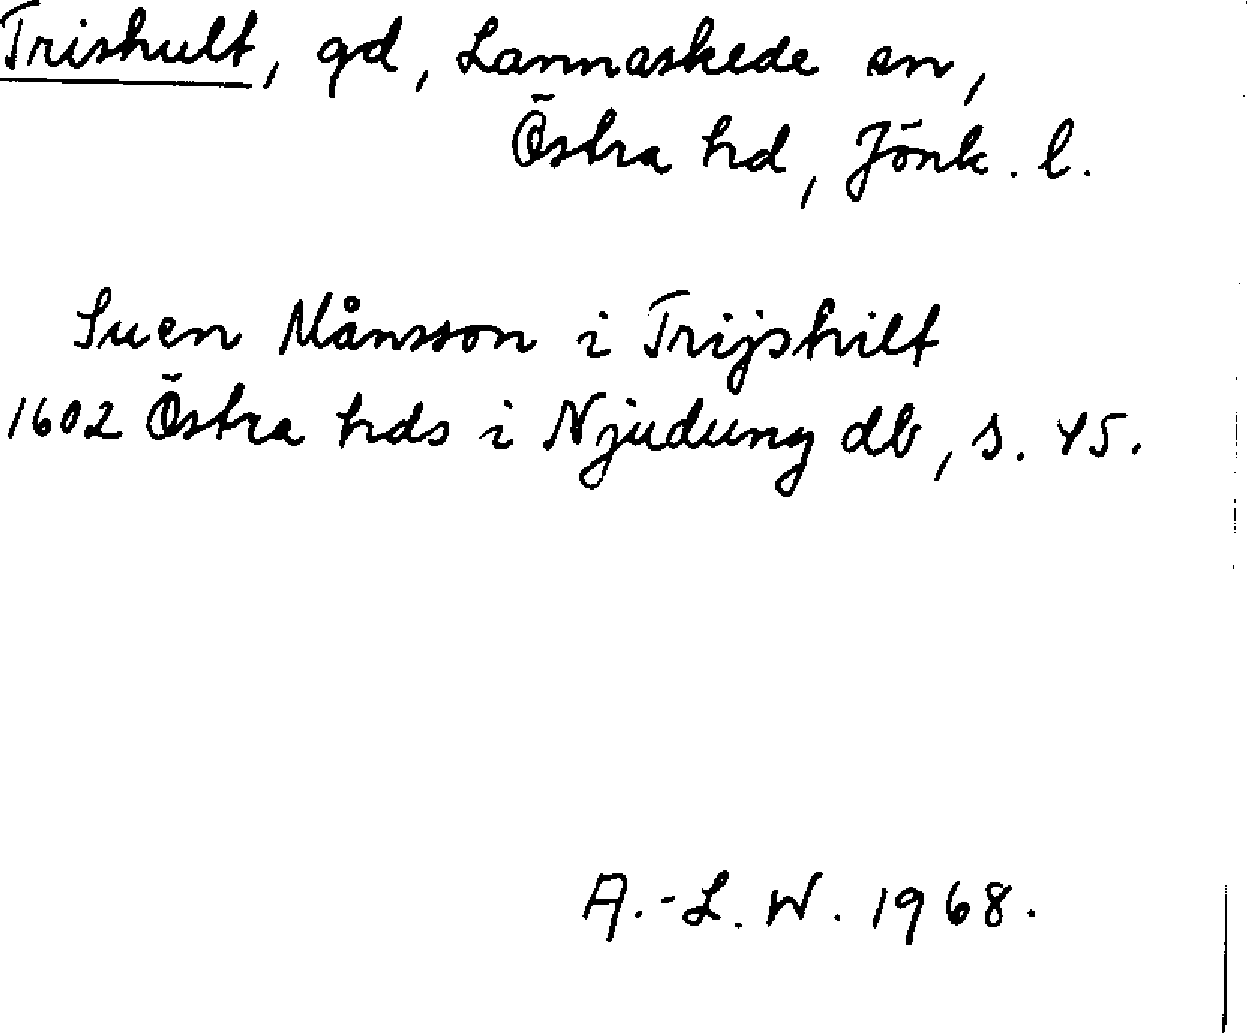 Trishult, gd, Lannaskede sn,
Östra hd, Jönk. l.
Suen Månsson i Trijshilt
1602 Östra hds i Njudung db, s. 45.
A.-L. W. 1968.